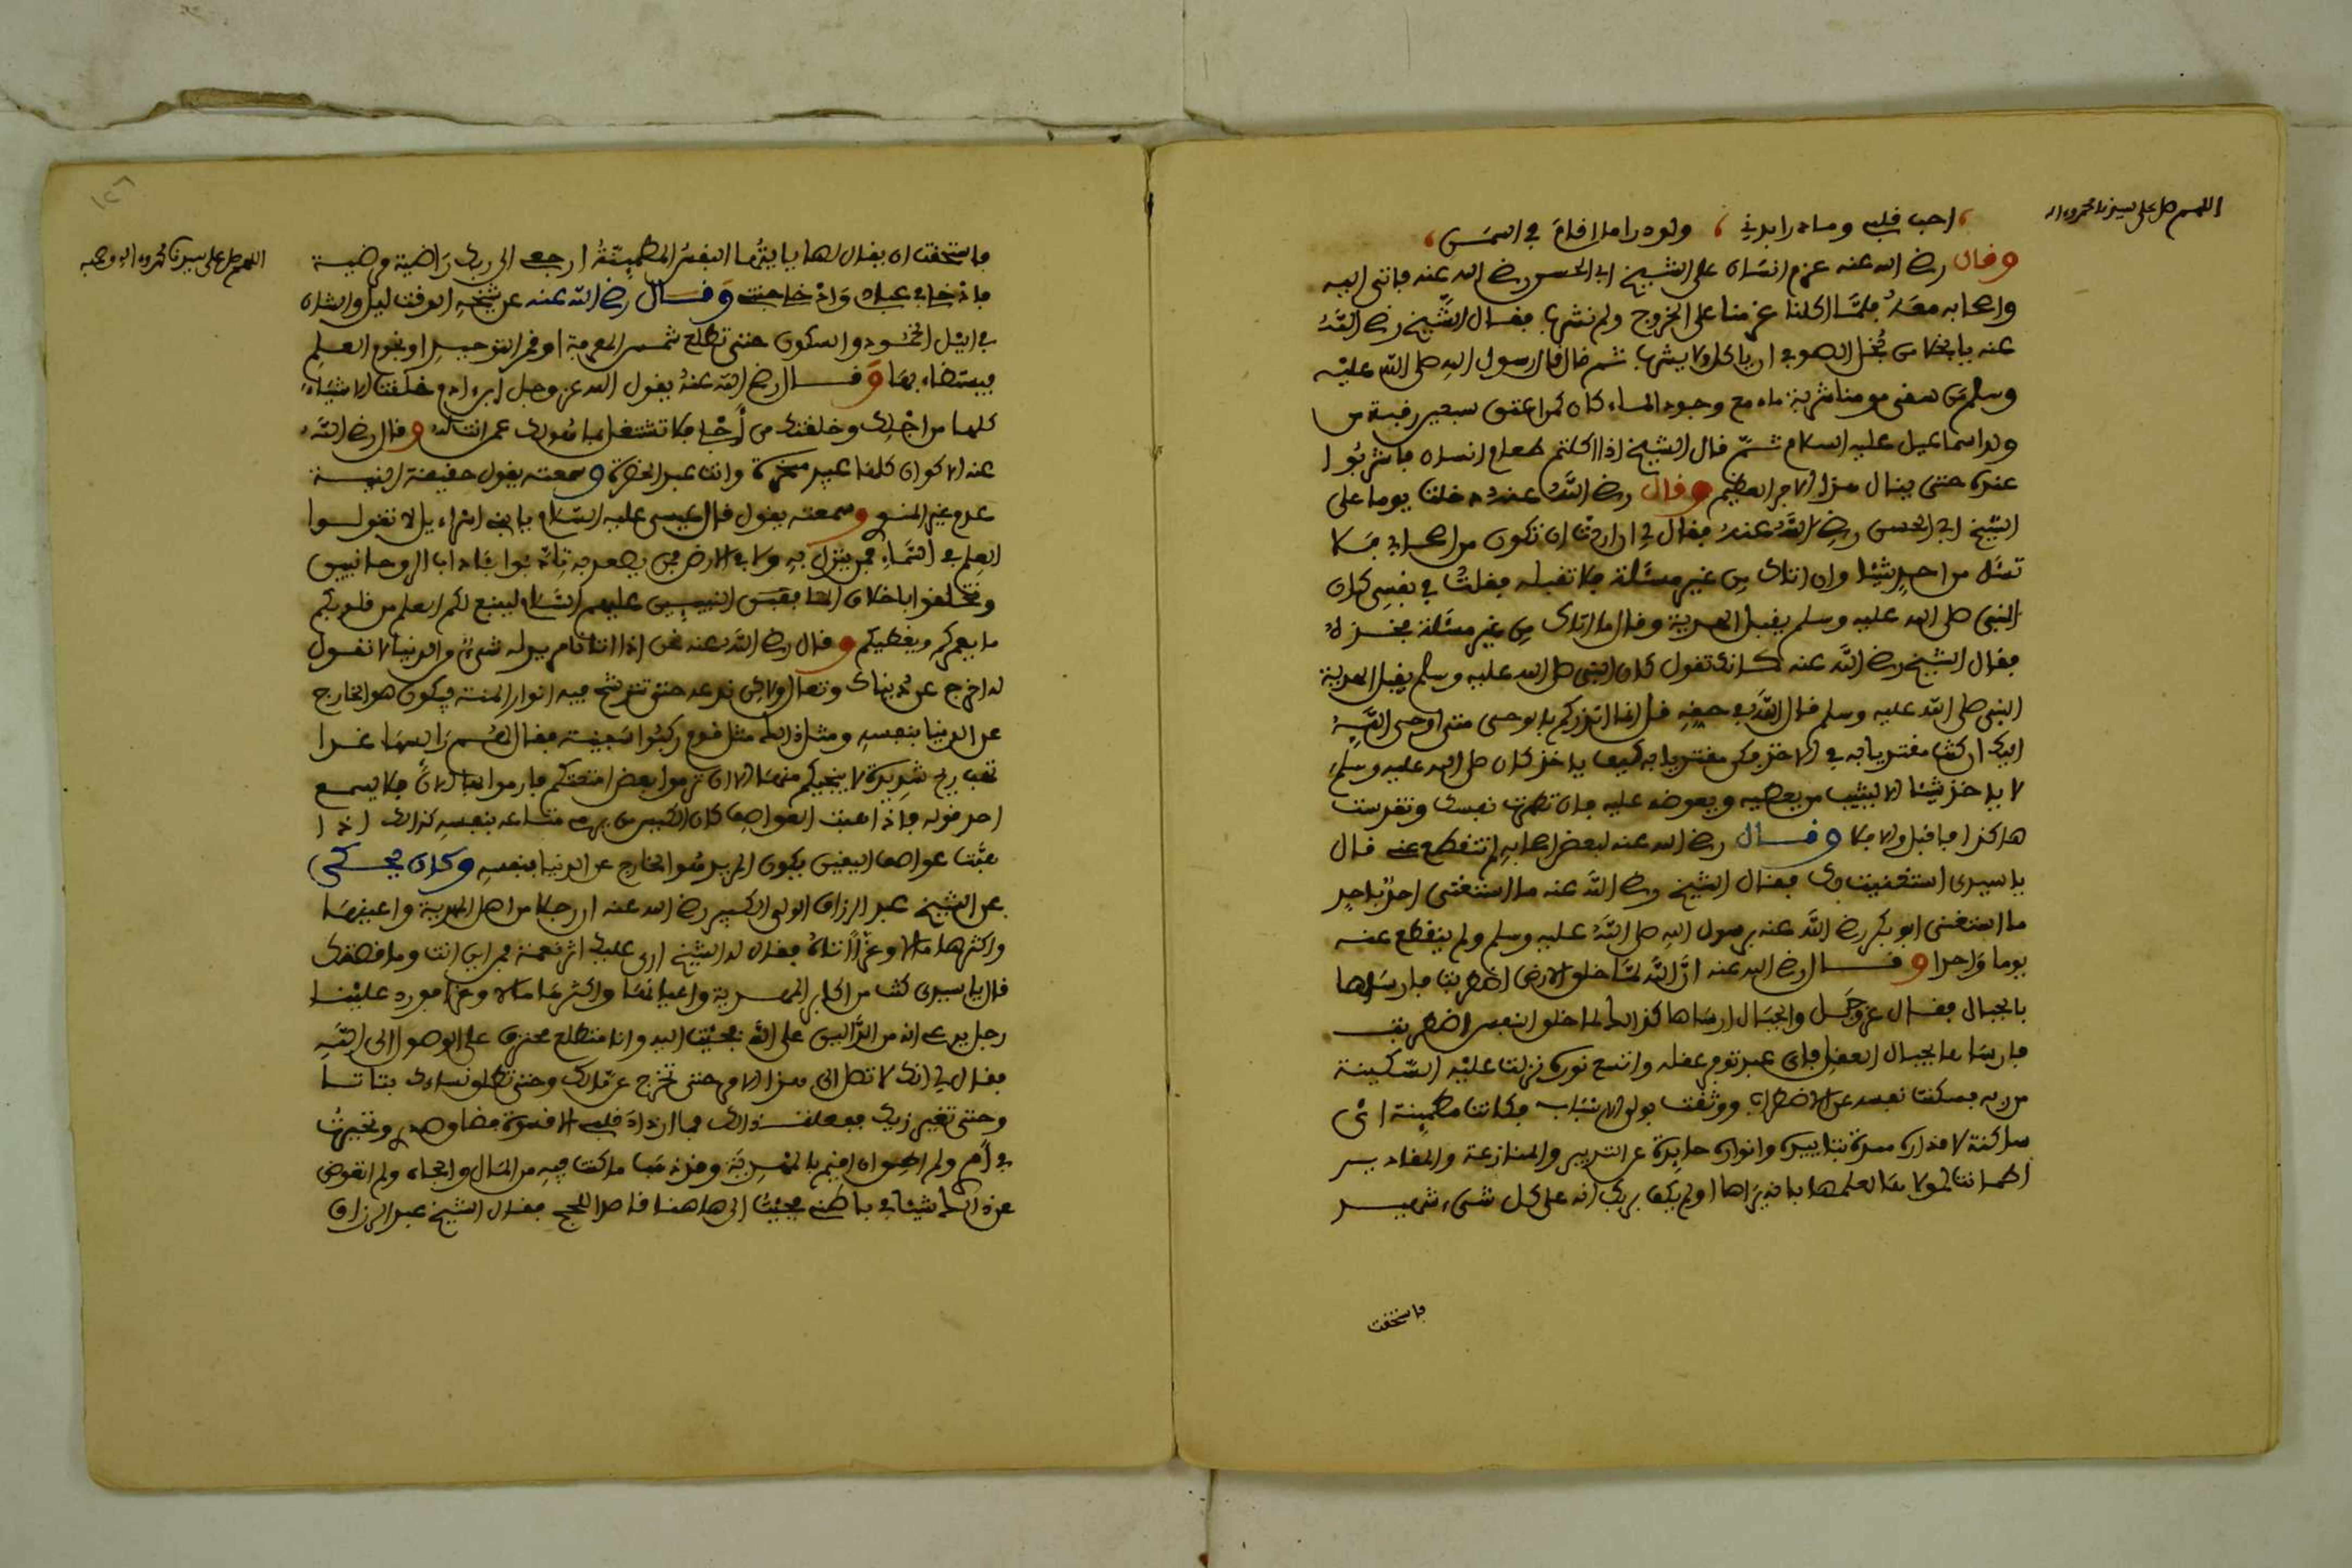 اللهم صل على سيدنا محمد وءاله
احب قلبي وما درا بدني ، ولو درا ما اقام في السمن ،
وقال رضي الله عنه عزم انسان على الشيخ ابي الحسن رضي الله عنه فاتى اليه
واصحابه معه فلما اكلنا عزمنا على الخروج ولم نشرب فقال الشيخ رضي الله
عنه يا بخلا من بخل الصوفي ان ياكل ولا يشرب ثم قال قال رسول الله صلى الله عليه
وسلم من سقى مومنا شربة ماء مع وجود الماء كان كمن اعتق سبعين رقبة من
ولد اسماعيل عليه السلام ثم قال الشيخ اذا اكلتم طعام انسان فاشربوا
عنده حتى ينال هذا الاجر العظيم وقال رضي الله عنه دخلت يوما على
الشيخ ابي الحسن رضي الله عنه فقال لي ان اردت ان تكون من اصحابي فلا
تسئل من احد شيئا وان اتاك من غير مسئلة فلا تقبله فقلت في نفسي كان
النبي صلى الله عليه وسلم يقبل الهدية وقال ما اتاك من غير مسئلة فخذه
فقال الشيخ رضي الله عنه كانك تقول كان النبي صلى الله عليه وسلم يقبل الهدية
النبي صلى الله عليه وسلم قال الله في حقه قل انما انذركم بالوحي متى اوحى الله
اليك ان كنت مقتديا به في الاخذ فكن مقتديا به كيف ياخذ كان صلى الله عليه وسلم
لا ياخذ شيئا الا ليثيب من يعطيه ويعوضه عليه فان تطهرت نفسك وتقدست
هاكذا فاقبل والا فلا وقال رضي الله عنه لبعض اصحابه لم انقطع عني قال
يا سيدي استغنيت بك فقال الشيخ رضي الله عنه ما استغنى احد باحد
ما استغنى ابو بكر رضي الله عنه برسول الله صلى الله عليه وسلم ولم ينقطع عنه
يوما واحدا وقال رضي الله عنه ان الله لما خلق الارض اضطربت فارساها
بالجبال فقال عز وجل والجبال ارساها كذالك لما خلق النفس اضطربت
فارساها بجبال العقل فاي عبد توفر عقله واتسع نوره نزلت عليه السكينة
من ربه فسكنت نفسه عن الاضطراب ووثقت بولي الاسباب فكانت مطمئنة اي
ساكنة لاقداره ممدة بتاييده وانواره حايدة عن التدبير والمنازعة والمقادير
اطمانت لمولاها لعلمها بانه يراها اولم يكف بربك انه على كل شيء شهيد
فاستحقت
اللهم صل على سيدنا محمد وءاله وصحبه
فاستحقت ان يقال لها يا ايتها النفس المطمئنة ارجعي الى ربك راضية مرضية
فادخلي في عبادي وادخلي جنتي وقال رضي الله عنه عن شيخه الوقت ليل والشان
في الليل الخمود والسكون حتى تطلع شمس المعرفة او قمر التوحيد او نجوم العلم
فيستضاء بها وقال رضي الله عنه يقول الله عز وجل ابن ادم خلقت الاشياء
كلها من اجلك وخلقتك من اجلي فلا تشتغل بما هو لك عمن انت له وقال رضي الله
عنه الاكوان كلها عبيد مسخرة وانت عبد الحضرة وسمعته يقول حقيقة النية
عدم غير المنوي وسمعته يقول قال عيسى عليه السلام يا بني اسراءيل لا تقولوا
العلم في السماء فمن ينزل به ولا في الارض فمن يصعد به تادبوا بئاداب الروحانيين
وتخلقوا باخلاق النبيين عليهم السلام لينبع لكم العلم من قلوبكم
ما يعمركم ويغطيكم وقال رضي الله عنه نحن اذا اتانا مريد له شيء من الدنيا لا نقول
له اخرج عن دنياك وتعال ولاكن ندعه حتى تترشح فيه انوار المنة فيكون هو الخارج
عن الدنيا بنفسه ومثل ذالك مثل قوم ركبوا سفينة فقال لهم رايسها غدا
تهب ريح شديدة لا ينجيكم منها الا ان ترموا بعض امتعتكم فارموا بها الان فلا يسمع
احد قوله فاذا هبت العواصف كان الكيس من يرمي متاعه بنفسه كذالك اذا
هبت عواصف اليقين يكون المريد هو الخارج عن الدنيا بنفسه وكان يحكي
عن الشيخ عبد الرزاق الولي الكبير رضي الله عنه ان رجلا من اهل المهدية واعيانها
واكثرها مالا وعزا اتاه فقال له الشيخ ارى عليك اثر نعمة فمن اين انت وما قصتك
قال يا سيدي كنت من اكابر المهدية واعيانها واكثرها مالا وعزا فورد علينا
رجل يدعي انه من الدالين على الله فجئت اليه وانا متطلع محترق على الوصول الى الله
فقال لي انك لا تصل الى هذا الامر حتى تخرج عن مالك وحتى تطلق نساءك بتاتا
وحتى تغير زيك ففعلت ذالك فما ازداد قلبي الا قسوة وتحيرت
في امري ولم اطق ان اقيم بالمهدية وقد ذهب ما كنت فيه من المال والجاه ولم اتعوض
عن ذالك شيئا في باطني فجئت الى هاهنا قاصدا للحج فقال الشيخ عبد الرزاق